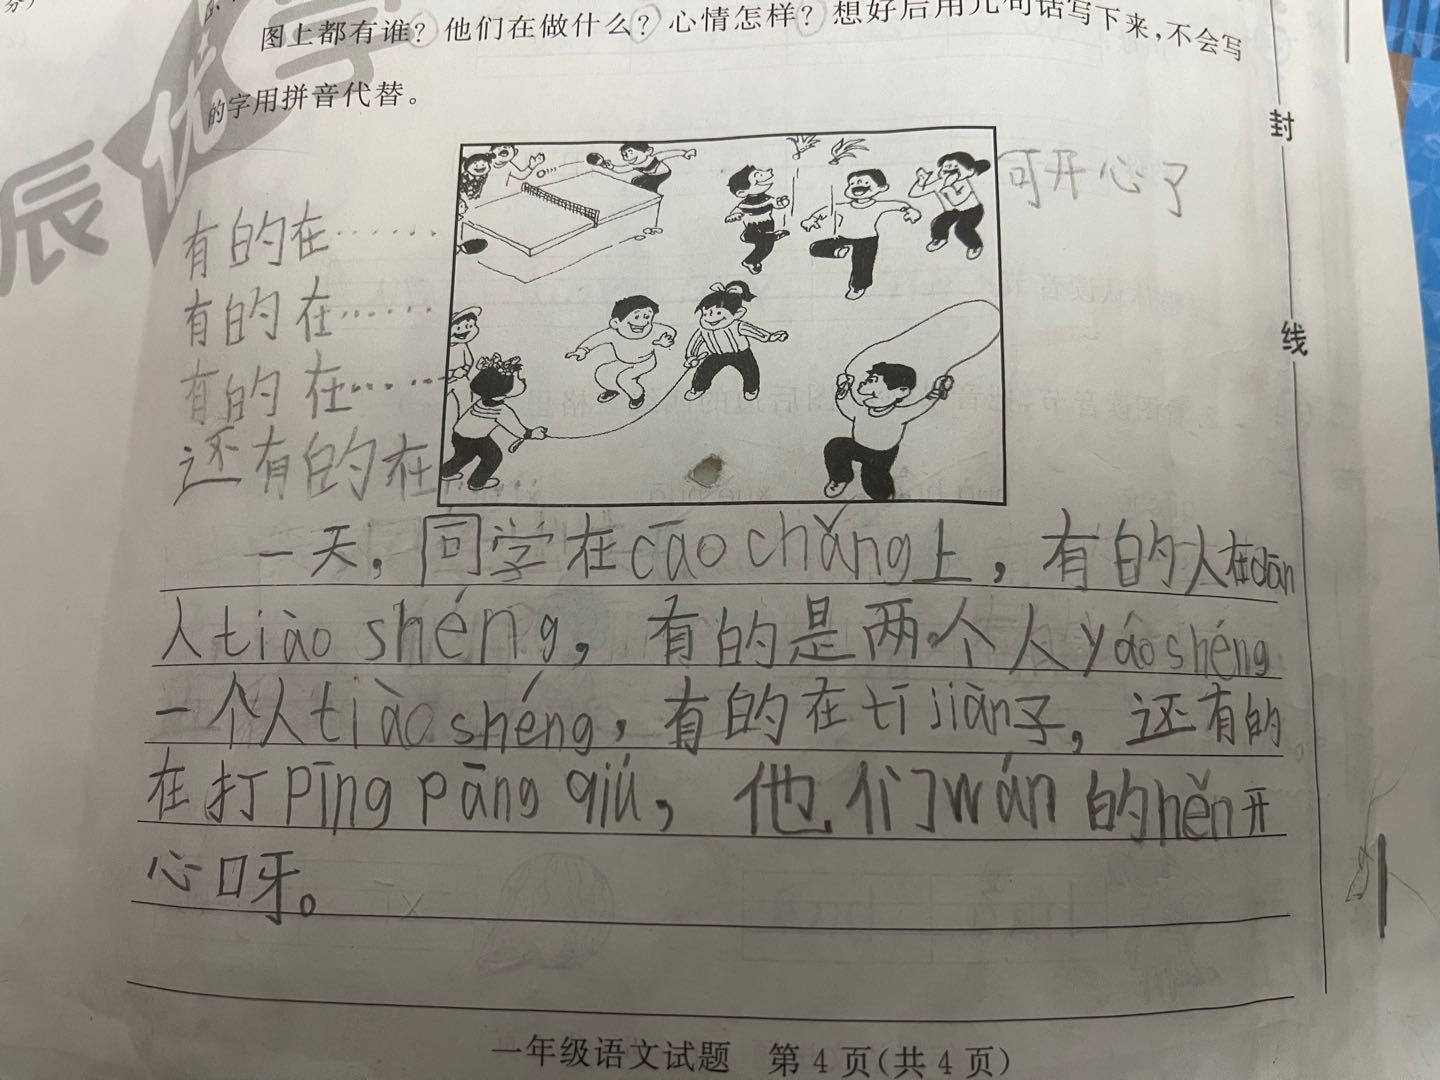 图上都有谁？他们在做什么？心情怎样？想好后用几句话写下来，不会写
的字用拼音代替。
辰优学
封
线
可开心了
有的在……
有的在……
有的在……
还有的在……
一天，同学在cāo chǎng上，有的人在dān
人tiào shéng，有的是两个人yáo shéng
一个人tiào shéng，有的在tī jiàn子，还有的
在打pīng pāng qiú，他们wán的hěn开
心呀。
一年级语文试题 第4页（共4页）